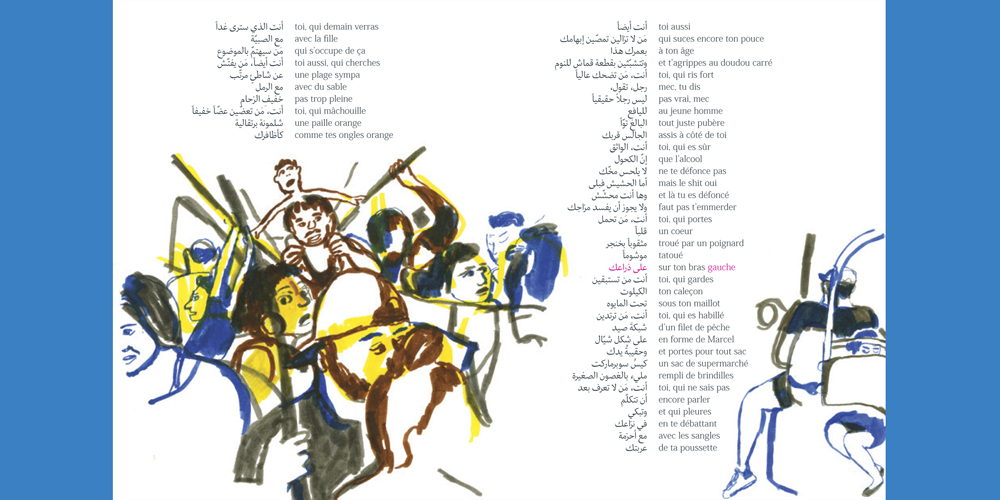 أنت الذي سترى غداً toi, qui demain verras
مع الصبيّة avec la fille
مَن سيهتمّ بالموضوع qui s'occupe de ça
أنت أيضاً، مَن يفتّش toi aussi, qui cherches
عن شاطئٍ مرتّب une plage sympa
مع الرمل avec du sable
خفيف الزحام pas trop pleine
أنت، مَن تعضّين عضّاً خفيفاً toi, qui mâchouille
شلمونة برتقالية une paille orange
كأظافرك comme tes ongles orange
أنت أيضاً toi aussi
مَن لا تزالين تمصّين إبهامك qui suces encore ton pouce
بعمرك هذا à ton âge
وتتشبّثين بقطعة قماش للنوم et t'agrippes au doudou carré
أنت، مَن تضحك عالياً toi, qui ris fort
رجل، تقول، mec, tu dis
ليس رجلاً حقيقياً pas vrai, mec
لليافع au jeune homme
البالغ توّاً tout juste pubère
الجالس قربك assis à côté de toi
أنت، الواثق toi, qui es sûr
إنّ الكحول que l'alcool
لا يلحس مخّك ne te défonce pas
أما الحشيش فبلى mais le shit oui
وها أنت محشّش et là tu es défoncé
ولا يجوز أن يفسد مزاجك faut pas t'emmerder
أنت، مَن تحمل toi, qui portes
قلباً un coeur
مثقوباً بخنجر troué par un poignard
موشوماً tatoué
على ذراعك sur ton bras gauche
أنت من تستبقين toi, qui gardes
الكيلوت ton caleçon
تحت المايوه sous ton maillot
أنت، مَن ترتدين toi, qui es habillé
شبكة صيد d'un filet de pêche
على شكل شيّال en forme de Marcel
وحقيبةُ يدك et portes pour tout sac
كيسُ سوبرماركت un sac de supermarché
مليء بالغصون الصغيرة rempli de brindilles
أنت، مَن لا تعرف بعد toi, qui ne sais pas
أن تتكلّم encore parler
وتبكي et qui pleures
في نزاعك en te débattant
مع أحزمة avec les sangles
عربتك de ta poussette